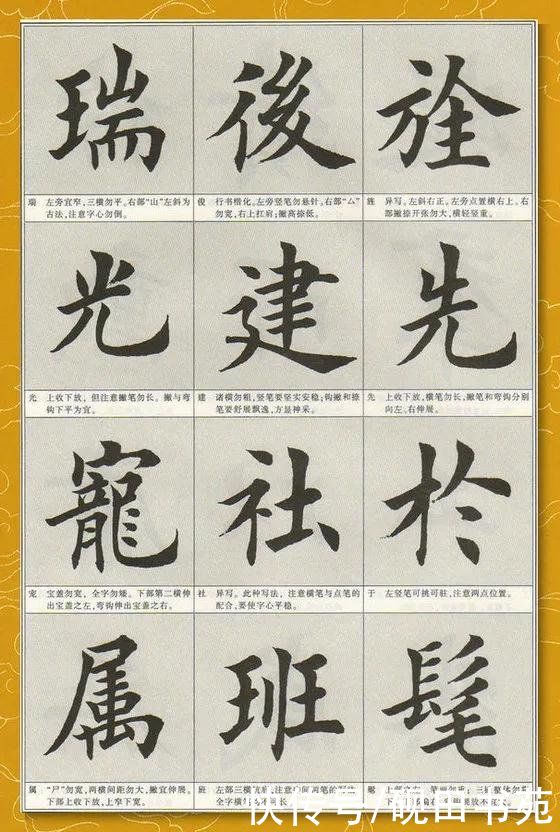 瑞 後 旌
瑞 左旁宜窄，三横勿平。右部“山”左斜为
古法，注意字心勿倒。
俊 行书楷化。左旁竖笔勿悬针。右部“厶”
勿宽，右上扛肩；撇高捺低。
旌 异写。左斜右正。左旁点置横右上。右
部撇捺开张勿大，横轻竖重。
光 建 先
光 上收下放，但注意撇笔勿长。撇与弯
钩下平为宜。
建 诸横勿粗，竖笔要竖实安稳；钩撇和捺
笔要舒展飘逸，方显神采。
先 上收下放，横笔勿长，撇笔和弯钩分别
向左、右伸展。
寵 社 於
宠 宝盖勿宽，全字勿矮。下部第二横伸
出宝盖之左，弯钩伸出宝盖之右。
社 异写。此种写法，注意横笔与点笔的
配合，要使字心平稳。
于 左竖笔可挑可驻，注意两点位置。
属 班 髦
属 “尸”勿宽，两横间距勿大，撇宜伸展。
下部上收下放，上窄下宽。
班 左部三横
全字横
快传号/砚田书苑